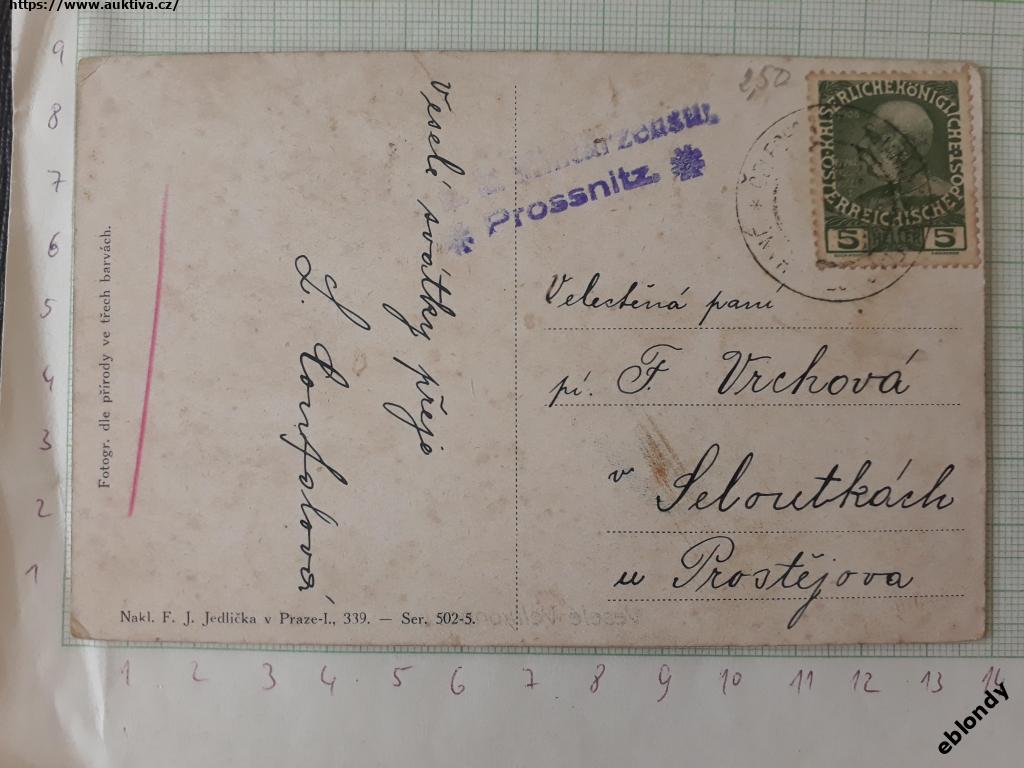 https://www.auktiva.cz/
2,50
Prossnitz.
5 HELLER 5
Velectěná paní
pí. F. Vrchová
v Seloutkách
u Prostějova
Veselé svátky přeje
Fotogr. dle přírody ve trech barvách.
Nakl. F. J. Jedlička v Praze-I., 339. — Ser. 502-5.
9
8
7
6
5
4
3
2
1
1 2 3 4 5 6 7 8 9 10 11 12 13 14
eblondy